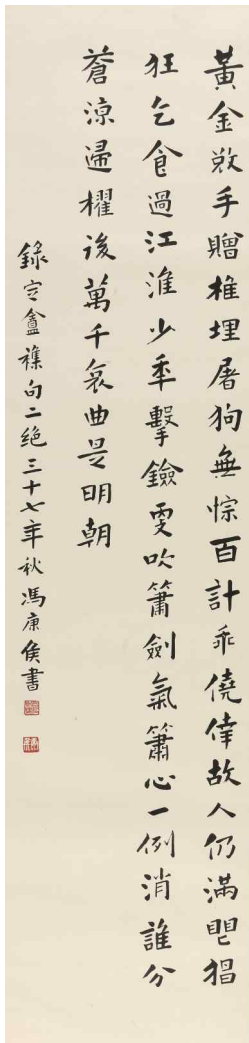 黃金敚手贈椎埋屠狗無悰百計乖僥倖故人仍滿眼猖
狂乞食過江淮少秊擊鐱更吹簫劍氣簫心一例消誰分
蒼涼歸櫂後萬千哀曲是明朝
錄定盦襍句二絕三十七年秋馮康侯書